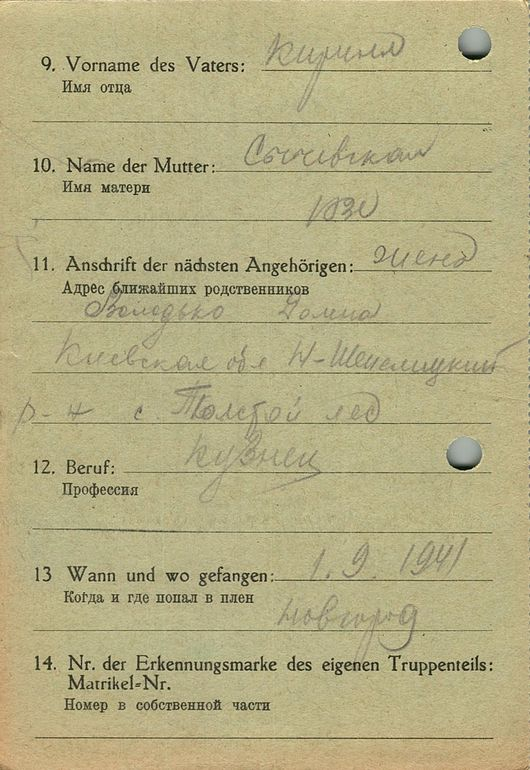 9. Vorname des Vaters: Кирила
Имя отца
10. Name der Mutter:
Имя матери
11. Anschrift der nächsten Angehörigen: жена
Адрес ближайших родственников
Володько Домна
Киевская обл Н-Шепелицкий
р-н с. Толстой лес
12. Beruf: кузнец
Профессия
13 Wann und wo gefangen: 1. 9. 1941
Когда и где попал в плен
Новгород
14. Nr. der Erkennungsmarke des eigenen Truppenteils:
Matrikel-Nr.
Номер в собственной части